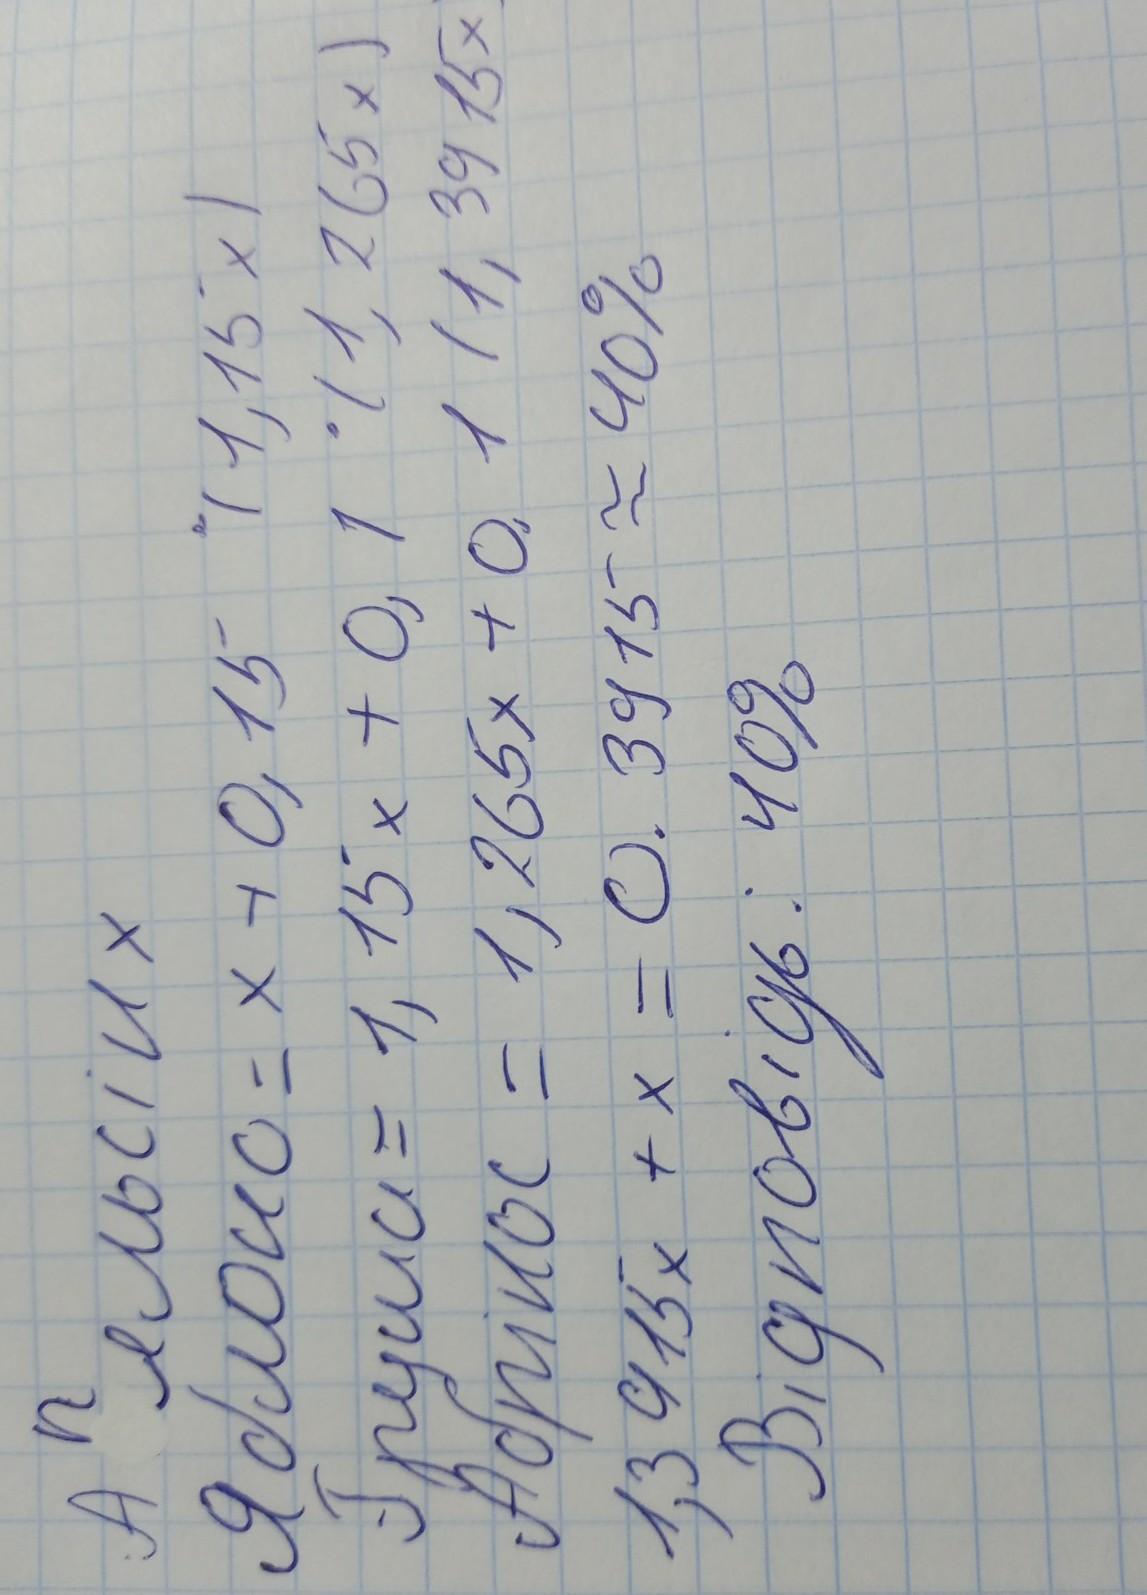 Апельсин x
Яблоко = x + 0,15 (1,15x)
Груша = 1,15x + 0,1 · (1,265x)
Абрикос = 1,265x + 0,1 (1,3915x
1,3915x + x = 0.3915 ≈ 40%
Відповідь: 40%